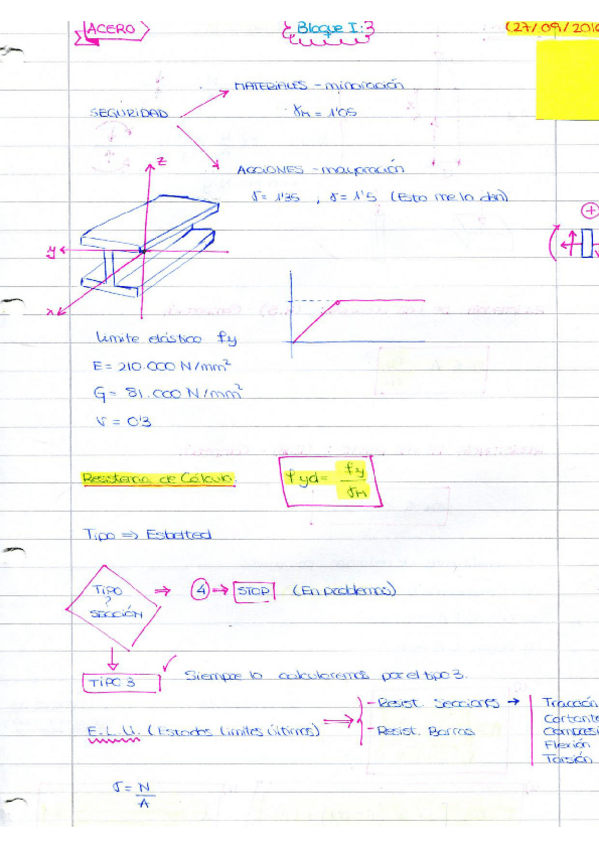 ACERO
Bloque I:
(27/09/2016
MATERIALES - minoración
γM = 1'05
SEGURIDAD
ACCIONES - mayoración
γ = 1'35 , γ = 1'5 (Esto me lo dan)
z
y
x
+
Límite elástico fy
E = 210.000 N/mm²
G = 81.000 N/mm²
ν = 0'3
Resistencia de Cálculo.
fyd = fy / γM
Tipo => Esbeltez
TIPO ? SECCIÓN => 4 -> STOP (En problemas)
TIPO 3
Siempre lo calcularemos por el tipo 3.
E.L.U. (Estados límites últimos) =>
- Resist. Secciones ->
- Resist. Barras
Tracción
Cortante
Compresi
Flexión
Torsión
σ = N / A